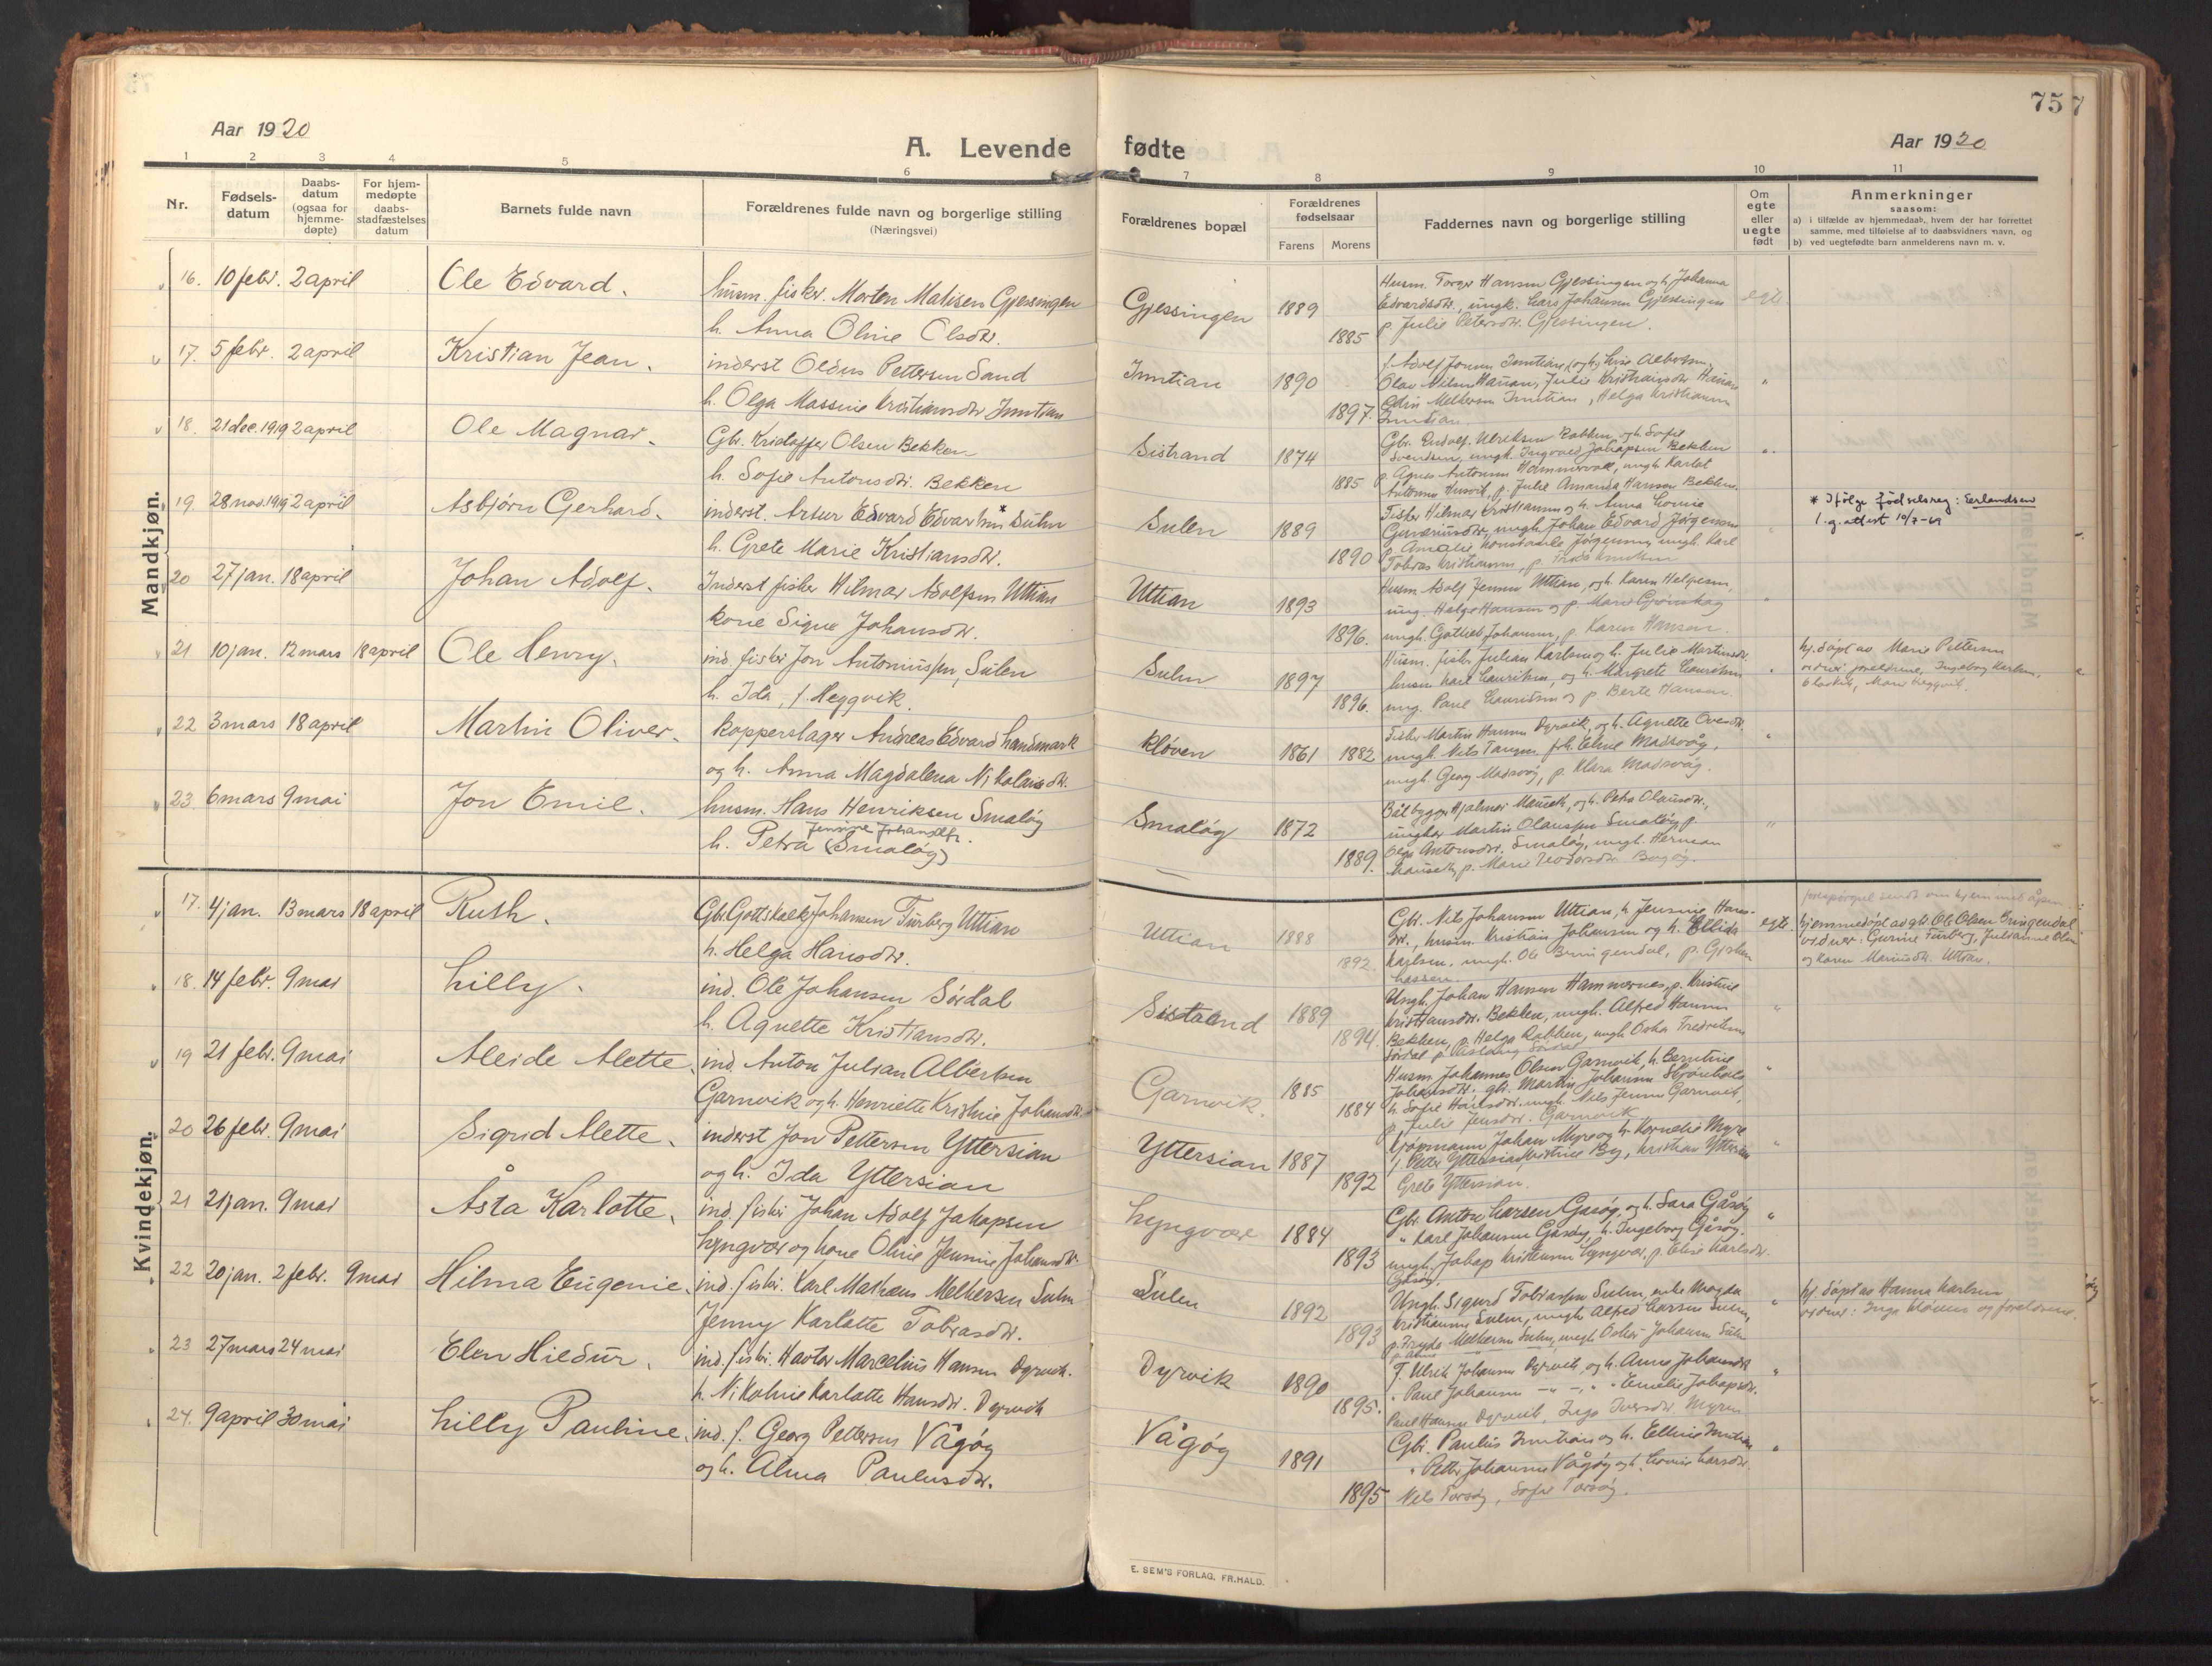 75
Aar 1920
A. Levende fødte
Aar 1920
1 2 3 4 5 6 7 8 9 10 11
Nr.
Fødselsdatum
Daabsdatum (ogsaa for hjemmedøpte)
For hjemmedøpte daabsstadfæstelses datum
Barnets fulde navn
Forældrenes fulde navn og borgerlige stilling
(Næringsvei)
Forældrenes bopæl
Forældrenes fødselsaar
Farens Morens
Faddernes navn og borgerlige stilling
Om egte eller uegte født
Anmerkninger
saasom:
a) i tilfælde av hjemmedaab, hvem der har forrettet
samme, med tilføielse af to daabsvidners navn, og
b) ved uegtefødte barn anmelderens navn m. v.
Mandkjøn.
16. 10 febr. 2 april Ole Edvard. husm. fisker. Morten Matisen Gjessingen
h. Anna Oline Olsdtr.
Gjessingen 1889 1885
Husm. Torger Hansen Gjessingen og h. Johanna
Edvardsdtr., ungk. Lars Johansen Gjessingen
p. Julie Petersdtr. Gjessingen.
egte
17. 5 febr. 2 april Kristian Jean. inderst Oldus Pettersen Sand
h. Olga Massine Kristiansdtr Inntian
Inntian 1890 1897.
Olav Nilsen Hanan, Julie Kristiansdtr
Edin Melkersen Inntian, Helga Kristiansen
Inntian
18. 21 dec. 1919 2 april Ole Magnar. Gbr. Kristoffer Olsen Bekken
h. Sofie Antonsdtr. Bekken
Sistrand 1874 1885
Gbr. Rudolf Ulriksen Rabben, og h. Sofie
Svendsen, ungk. Ingvald Jakopsen Bekken
p. Agnes Antonsen Hammervold, ungk. Karlot
Antonsen Husvik, p. Julie Amanda Hansen Bekken.
19 28 nov. 1919 2 april Asbjørn Gerhard. inderst. Artur Edvard Edvartsen * Suln
h. Grete Marie Kristiansdtr.
Sulen 1889 1890
Fisker Hilmar Kristiansen og h. Anna Lovise
ungk. Johan Edvard Jørgensen
p. Amalie Konstanse Jørgensen, ungk. Karl
Tobias Kristiansen, p.
* Ifølge fødselsreg: Eerlandsen
l. g. attest 10/7-69
20 27 jan. 18 april Johan Adolf. Inderst fisker Hilmar Adolfsen Uttian
kone Signe Johansdtr.
Uttian 1893 1896.
Husm Adolf Jensen Uttian, og h. Karen Helgesen,
ung. Helge Hansen og p. Marie
ungk. Gotlieb Johansen, p. Karen Hansen.
21 10 jan. 12 mars 18 april Ole Henry. ind. fisker Jon Antoniussen, Sulen
h. Ida, f. Heggvik.
Suln 1897 1896.
Husm. fisker Julian Karlsen og h. Julie Martinsdtr.
husm Karl Lauritsen, og h. Margrete Lauritsen
ung. Paul Lauritsen og p Berte Hansen
hj. døpt av Marie Pettersen
vidner: foreldrene, Ingeborg Karlsen,
22 3 mars 18 april Martin Oliver. kopperslager Andreas Edvard Landmark
og h. Anna Magdalena Nikolaisdtr.
Kløven 1861 1882
Fisker Martin Hansen Dyrvik, og h. Agnette Ovesdtr.
ungk. Nils Tangen, frk. Eline Madsvåg,
ungk. Georg Madsvåg, p. Klara Madsvåg.
23 6 mars 9 mai Jon Emil. husm. Hans Henriksen Smaløy
h. Petra Jensine Johansdtr. (Smaløy)
Smaløy 1872 1889.
Båtbygger Hjalmar Mausek, og h. Petra Olausdtr.,
ungkar Martin Olaussen Smaløy, p.
Olga Antonsdtr. Smaløy, ungk. Herman
Mausek, p. Marie Teodorsdtr Bogøy.
Kvindekjøn.
17. 4 jan. 13 mars 18 april Ruth. Gbr. Gottskalk Johansen Furberg Uttian
h. Helga Hansdtr.
Uttian 1888 1892.
Gbr. Nils Johansen Uttian, h. Jensine Hansdtr.,
husm. Kristian Johansen og h. Ellida
Karlsen, ungk. Ole Bringendal, p.
egte.
hjemmedøpt av gbr. Ole Olsen Bringendal
vidner: Gurine Furberg, Julianne Olsen
og Karen Mariusdtr. Uttian.
18. 14 febr. 9 mai Lilly. ind. Ole Johansen Sørdal
h. Agnette Kristiansdtr.
Sistrand 1889 1894.
Ungk. Johan Hansen Hammernes, p. Kristine
Kristiansdtr. Bekken, ungk. Alfred Hansen
Bekken, p. Helga Rabben, ungk Oskar Fredriksen
Sørdal
19 21 febr. 9 mai Aleide Alette. ind. Anton Julian Albertsen
Garnvik og h. Henriette Kristine Johansdtr.
Garnvik. 1885 1884
Husm. Johannes Olsen Garnvik, h. Berntine
Johansdtr. gbr. Martin Johansen
h. Sofie Hansdtr. ungk. Nils Jensen Garnvik,
p. Julie Jensdtr. Garnvik
20 26 febr. 9 mai Sigrid Alette. inderst Jon Pettersen Yttersian
og h. Ida Yttersian
Yttersian 1887 1892
Kjøpmann Johan Myre og h. Kornelie Myre
f. Peter Yttersian, Kristine By, Kristian Yttersian
Grete Yttersian.
21 21 jan. 9 mai Åsta Karlotte. ind. fisker Johan Adolf Jakopsen
Lyngvær og kone Oline Jensine Johansdtr.
Lyngvær 1884 1893
Gbr. Anton Larsen Gåsøy, og h. Sara Gåsøy
" Karl Johansen Gåsøy, h. Ingeborg Gåsøy.
ungk. Jakop Kristensen Lyngvær, p. Elise Karlsdtr.
Gåsøy.
22 20 jan. 2 febr. 9 mai Hilma Eugenie. ind. fisker. Karl Mathæus Melkersen Suln
Jenny Karlotte Tobiasdtr.
Sulen 1892 1893
Ungk. Sigurd Tobiassen Suln, enke Magda
Kristiansen Suln, ungk Alfred Larsen Suln,
p. Fryda Melkersen Suln, ungk Oskar Johansen Suln
hj. døpt av Hanna Karlsen
vidner: Inga Kløven og foreldrene.
23 27 mars 24 mai Elen Hildur. ind. fisker. Havtor Marcelius Hansen Dyrvik.
h. Nikoline Karlotte Hansdtr. Dyrvik
Dyrvik 1890 1895.
F. Ulrik Johansen Dyrvik, og h. Anne Johansdtr
" Paul Johansen — " — , " " Emelie Jakopsdtr.
Paul Hansen Dyrvik, Inga Iversdtr. Myren
24. 9 april 30 mai Lilly Pauline. ind. f. Georg Pettersen Vågøy
og h. Alma Paulusdtr.
Vågøy 1891 1895
Gbr. Paulus Inntian og h. Elline Inntian
" Petter Johansen Vågøy og h. Lovise Larsdtr.
Nils Torsøy, Sofie Torsøy.
E. SEM'S FORLAG. FR.HALD.